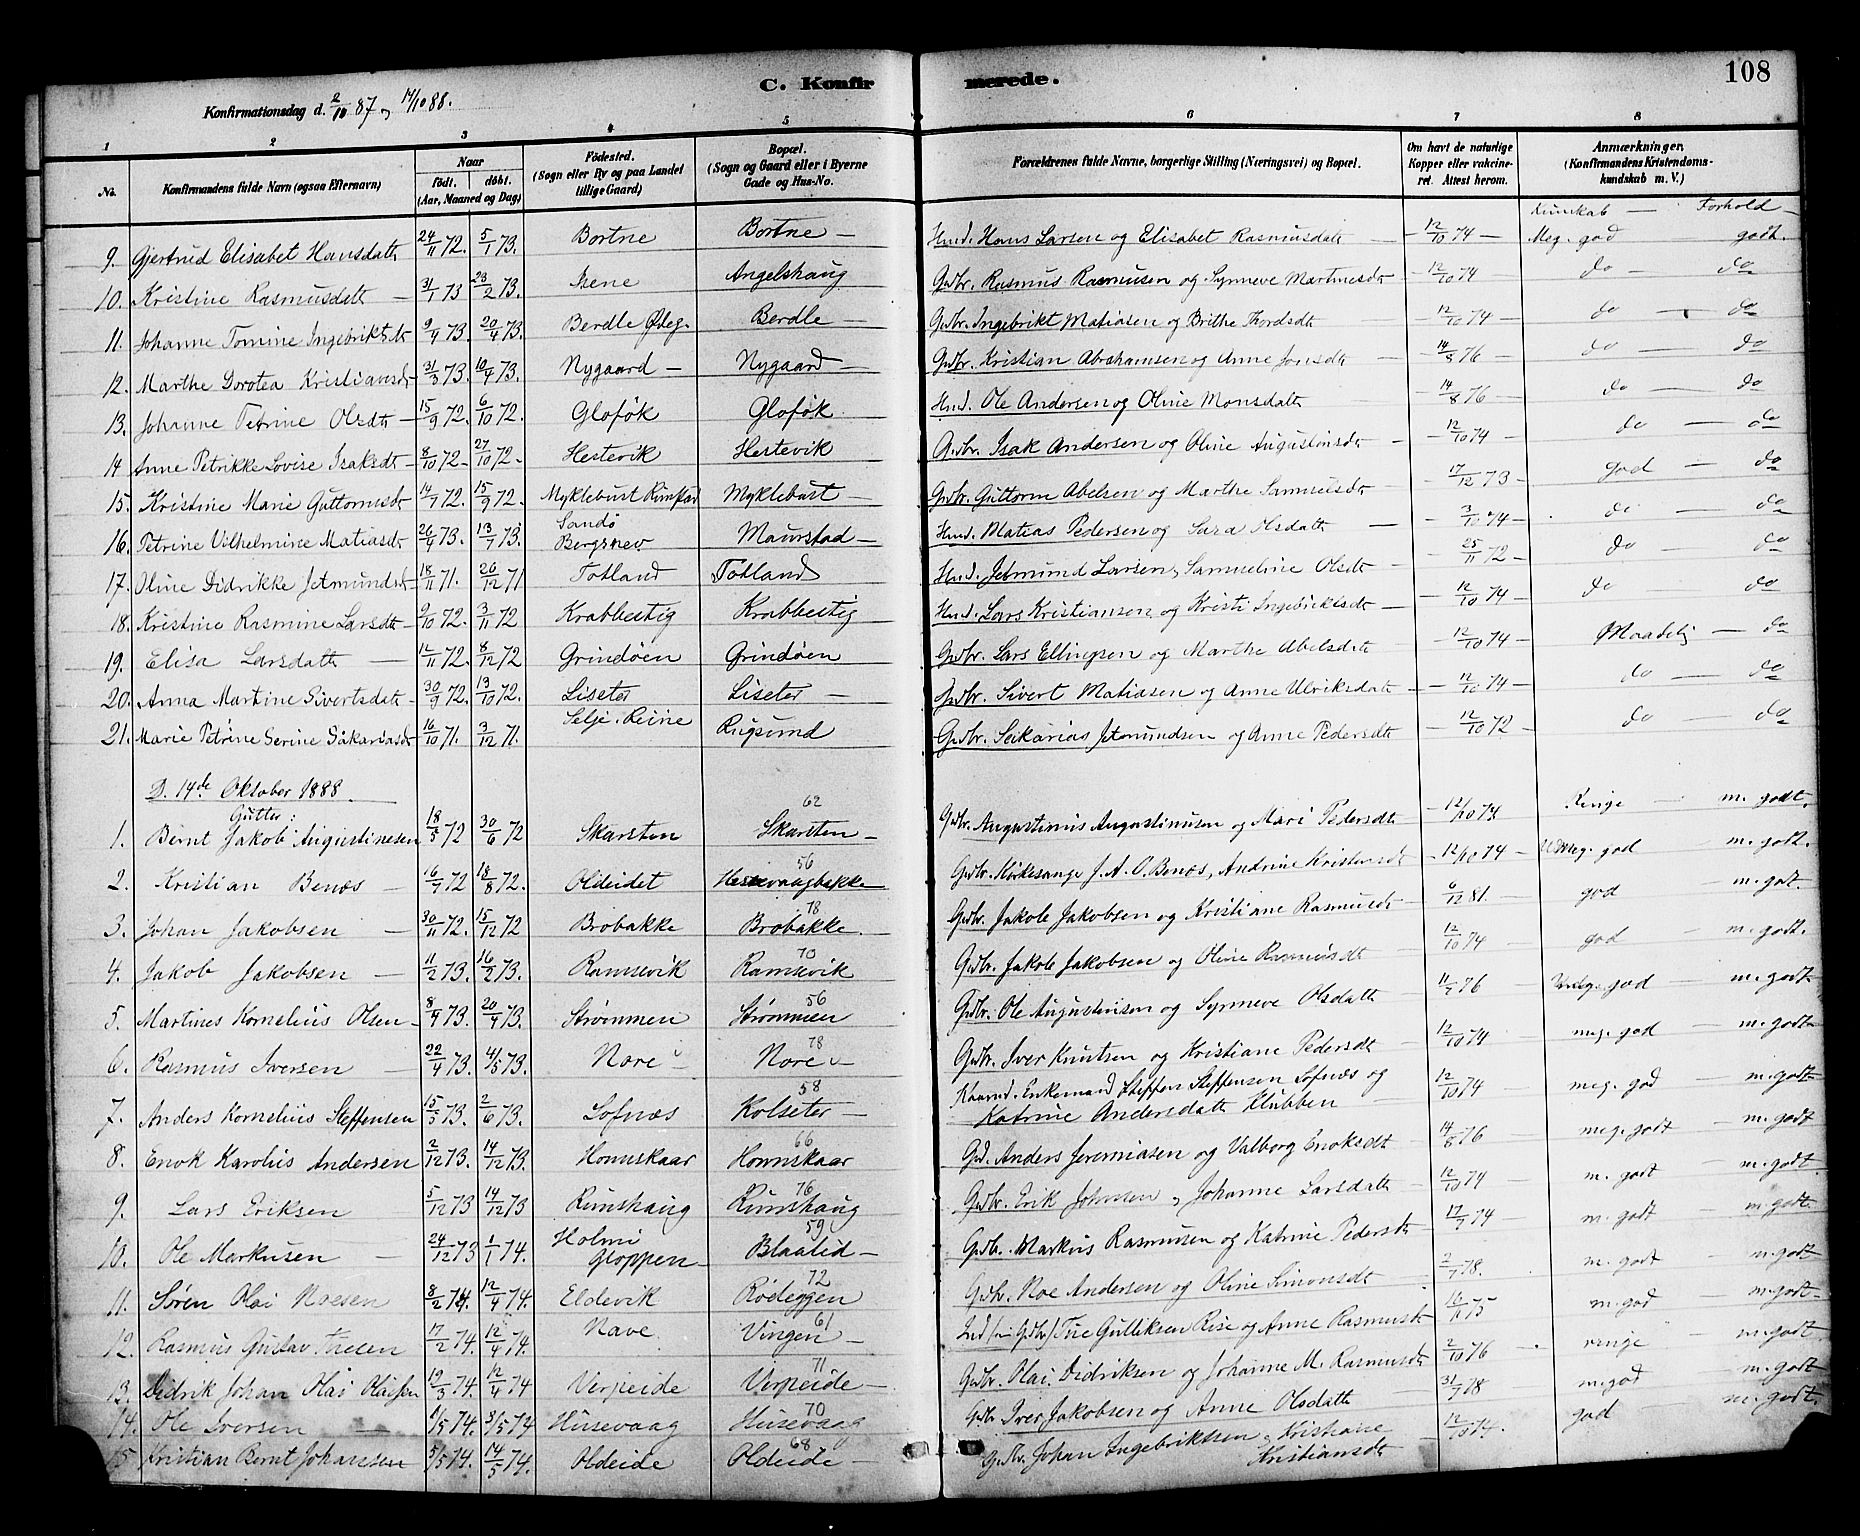 108
C. Konfirmerede.
Konfirmationsdag d. 2/10 87 og 14/10 88.
1 2 3 4 5 6 7 8
No. Konfirmandens fulde Navn (ogsaa Efternavn) Naar født. døbt. (Aar, Maaned og Dag) Födested. (Sogn eller By og paa Landet tillige Gaard) Bopæl. (Sogn og Gaard eller i Byerne Gade og Hus-No. Forældrenes fulde Navne, borgerlige Stilling (Næringsvei) og Bopæl. Om havt de naturlige Kopper eller vakcineret. Attest herom. Anmærkninger. (Konfirmandens Kristendomskundskab m. V.)
Kunskab — Forhold —
9. Gjertrud Elisabet Hansdatt 24/11 72. 5/1 73. Bortne Bortne — Hmd. Hans Larsen og Elisabet Rasmusdatt — 12/10 74 — Meg. god godt.
10. Kristine Rasmusdatt — 31/1 73 23/2 73. Isene Angelshaug Gdbr. Rasmus Rasmusen og Synneve Martinesdt — 12/10 74 do — do
11. Johanne Tomine Ingebriktsdt 9/4 73. 20/4 73. Berdle Ødeg. Berdle — Gdbr. Ingebrikt Matiasen og Brithe Thordsdt — 12/10 74 — do — do
12. Marthe Dorotea Kristiansdt 31/3 73. 10/4 73. Nygaard — Nygaard — Gdbr. Kristian Abrahamsen og Anne Jonsdt — 14/8 76 — do — do
13. Johanne Petrine Olsdt — 15/9 72. 6/10 72. Gloføk Gloføk. Hmd. Ole Andersen og Oline Monsdatt — 14/8 76 — do — do
14 Anne Petrikke Lovise Isaksdt — 8/10 72 — 27/10 72 — Hestevik Hestevik Gdbr. Isak Andersen og Oline Augustinsdt — 12/10 74 do — do
15. Kristine Marie Guttormsdt 14/7 72. 15/9 72. Myklebust Rimstad Myklebust — Gdbr. Guttorm Abelsen og Marthe Samuelsdt — 17/12 73 god — do
16. Petrine Vilhelmine Matiasdt 26/4 73. 13/7 73. Sandø Bergsnev Maurstad — Hmd. Matias Pedersen og Sara Olsdatt — 3/10 74 — do do
17. Oline Didrikke Jetmundsdt 18/11 71. 26/12 71 Totland Totland Hmd. Jetmund Larsen, Samueline Olsdt — 25/11 72 — do — do
18. Kristine Rasmine Larsdt — 9/10 72. 3/11 72 Krabbestig Krabbestig Hmd. Lars Kristiansen og Kristi Ingebriktsdt — 12/10 74 — do — do
19. Elisa Larsdatt — 12/11 72. 8/12 72 Grindøen Grindøen Gdbr. Lars Ellingsen og Marthe Abelsdatt — 12/10 74 — Maadelig — do
20. Anna Martine Sivertsdatt — 30/9 72. 13/10 72. Liseter Liseter — Gdbr. Sivert Matiasen og Anne Ulriksdatt — 12/10 74 — do — do
21. Marie Petrine Serine Sakariasdt 16/10 71. 3/12 71. Selje. Reine Rugsund Gdbr. Sakarias Jetmundsen og Anne Pedersdt — 12/10 72 — do — do
D. 14de Oktober 1888.
Gutter:
1. Bernt Jakob Augustinesen 18/5 72 30/6 72 Skarsten 62 Skarsten — Gdbr. Augustinus Augustinusen og Mari Pedersdt — 12/10 74 Ringe — m. godt.
2. Kristian Benæs — 16/7 72 18/8 72. Oldeidet 56 Hessevaagbakke Gdbr. Kirkesanger J. A. O. Benæs, Andrine Kristensdt — 12/10 74 — Meg. god — m. godt.
3. Johan Jakobsen — 30/11 72. 15/12 72 Brobakke 78 Brobakke. Gdbr. Jakob Jakobsen og Kristiane Rasmusdt 6/12 81. god — m. godt.
4. Jakob Jakobsen — 11/2 73. 16/2 73. Ramsevik 70 Ramsevik Gdbr. Jakob Jakobsen og Oline Rasmusdt 12/10 74 god — m. godt.
5. Martines Kornelius Olsen — 8/4 73. 20/4 73. Strømmen 56 Strømmen Gdbr. Ole Augustinsen og Synneve Olsdatt — 11/7 76 god — m. godt
6. Rasmus Iversen — 22/4 73. 4/5 73. Nore 78 Nore Gdbr. Iver Knutsen og Kristiane Pedersdt — 12/10 74 meg. god — m. godt
7. Anders Kornelius Steffensen 15/5 73. 2/6 73. Lofnæs 58 Kolseter — Enkemand Steffen Steffensen Lofnæs og Katrine Andersdatt Klubben — 12/10 74 meg. god — m. godt
8. Enok Karolius Andersen 2/12 73. 14/12 73. Hornskaar 66 Hornskaar Gd. Anders Jeremiasen og Valborg Enoksdt 14/8 76 — meg. godt — m. godt
9. Lars Eriksen 5/12 73 14/12 73 Rimshaug 76 Rimshaug Gdbr. Erik Johnsen og Johanne Larsdatt — 12/10 74 — m. godt — m. godt
10. Ole Markusen — 24/12 73 1/1 74. Holmi Gloppen — 59 Blaalid — Gdbr. Markus Rasmusen og Katrine Pedersdt 17/7 74 — m. godt — m. godt.
11. Søren Olai Noesen 8/2 74. 12/4 74. Eldevik 72 Rødeggen Gdbr. Noe Andersen og Oline Simonsdt 2/7 78. m. godt — m. godt
12. Rasmus Gustav 17/2 74. 12/4 74. Nave. 61 Vingen — Gulliksen Rise og Anne Rasmusdt m. god — m. godt
13. Didrik Johan Olai Olaisen 19/3 74. 12/4 74 Verpeide 71 Verpeide — Gdbr. Olai Didriksen og Johanne M. Rasmusdt 2/10 76 . ringe — m. godt
14. Ole Iversen — 1/5 74. 3/5 74 Husevaag 70 Husevaag Gdbr Iver Jakobsen og Anne Olsdatt 31/7 78 m. god m. godt
15 Kristian Bernt Johansen 5/5 74. 14/5 74. Oldeide 68 Oldeide — Gdbr. Johan Ingebriktsen og Kristiane Kristiansdt 12/10 74. god m. godt.